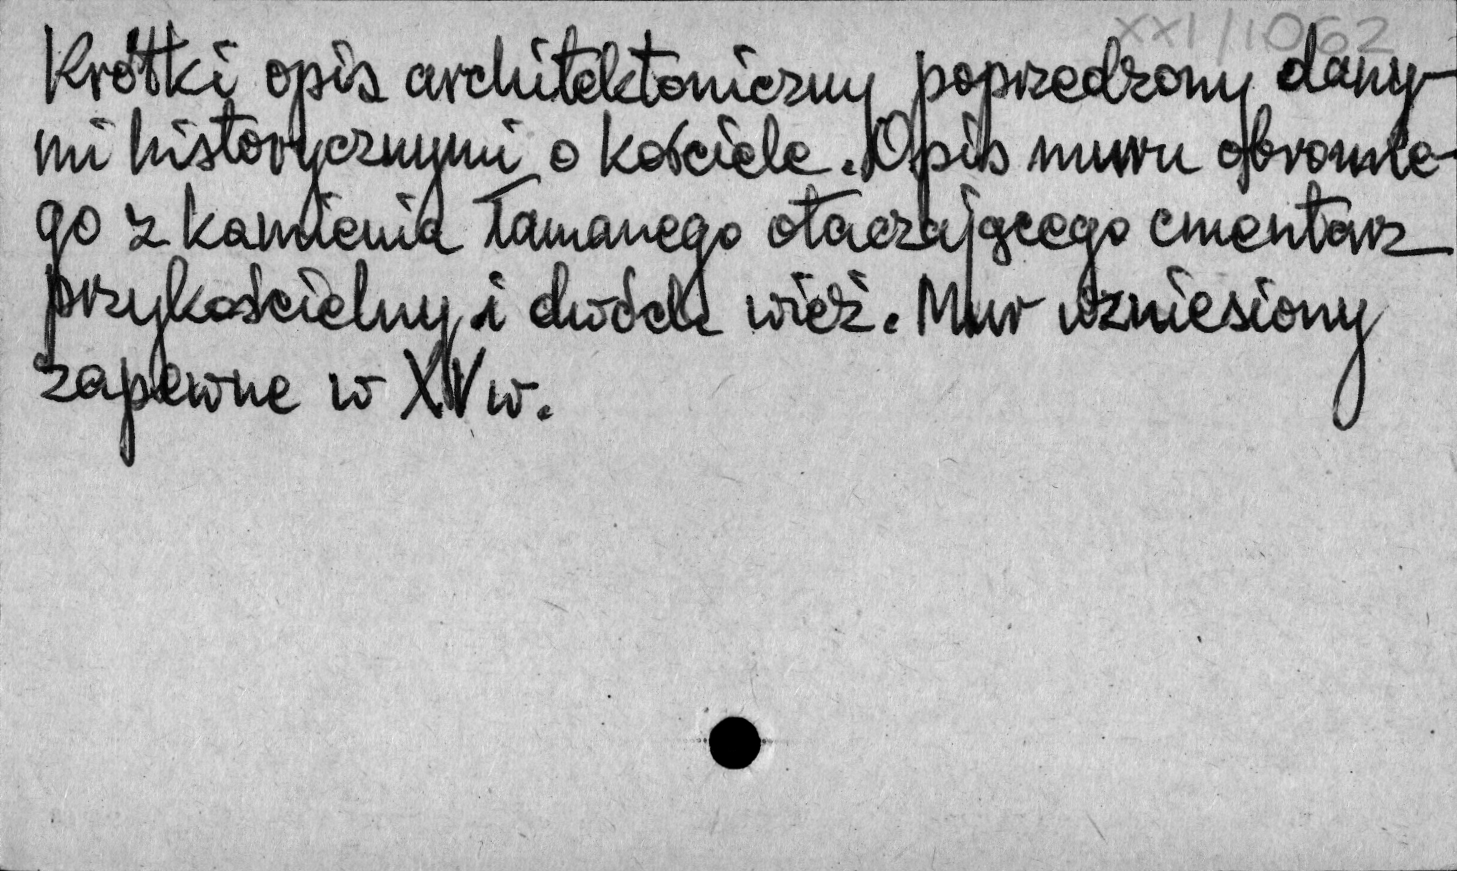 XXI/1062
Krótki opis architektoniczny poprzedzony dany-
mi historycznymi o kościele. Opis muru obronne-
go z kamienia łamanego otaczającego cmentarz
przykościelny i dwóch wież. Mur wzniesiony
zapewne w XV w.